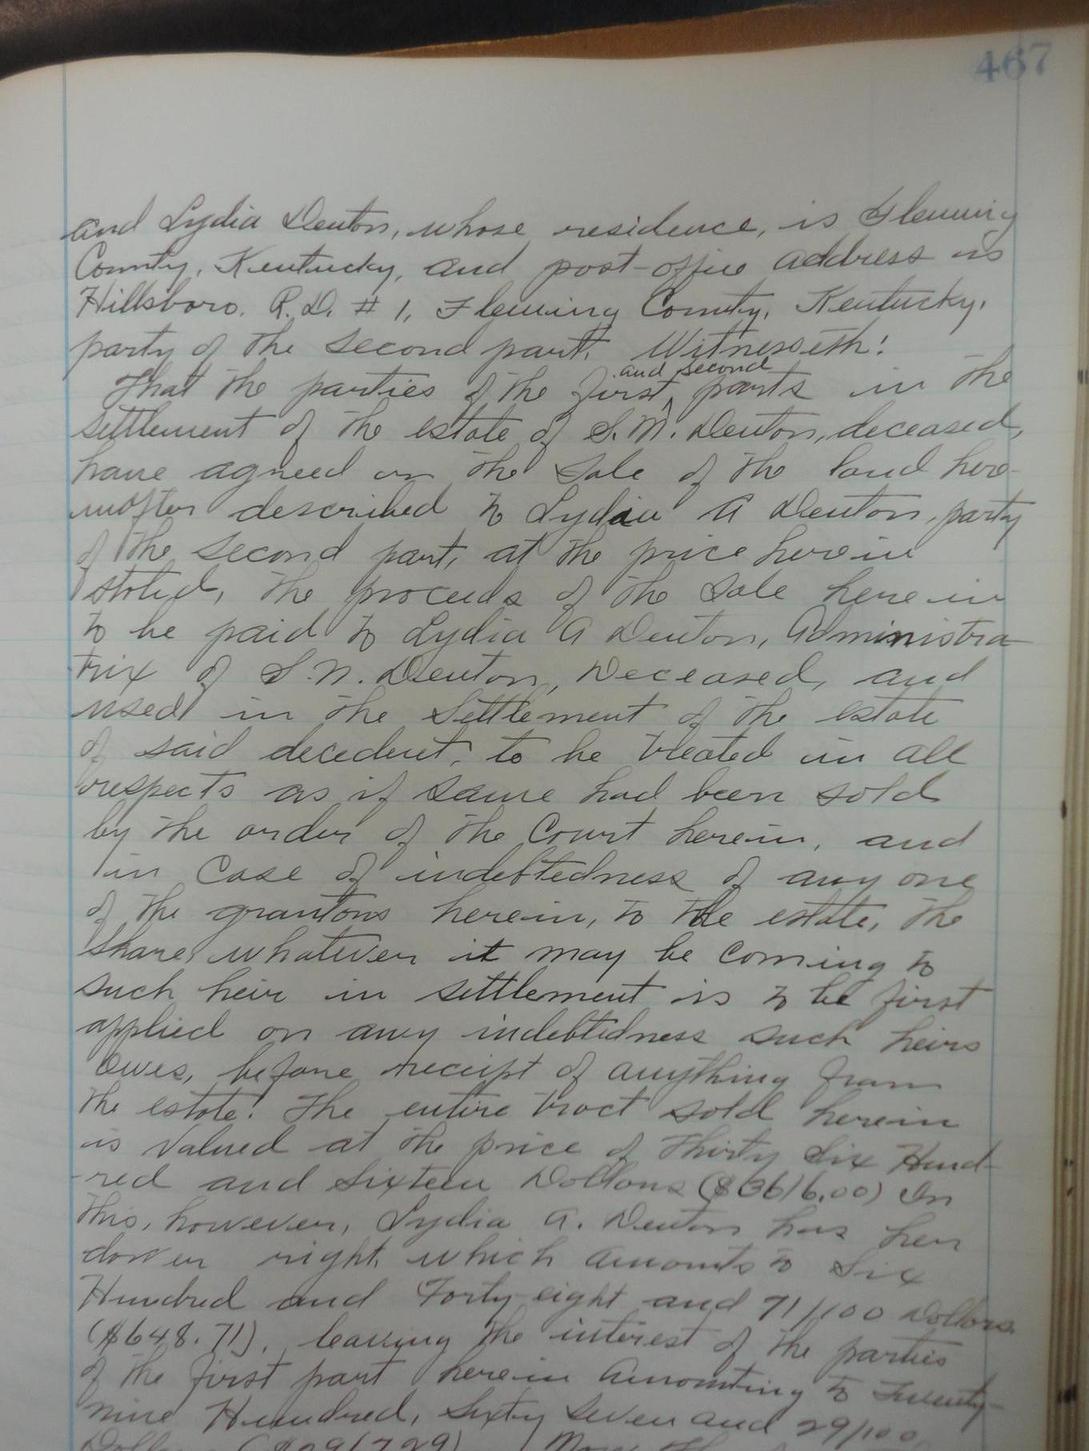 467
and Lydia Denton, whose residence, is Fleming
County, Kentucky, and post-office address is
Hillsboro, R.D. # 1, Fleming County, Kentucky,
party of the second part, Witnesseth:
and second
That the parties of the first ^ parts in the
settlement of the estate of S.N. Denton, deceased,
have agreed on the sale of the land here-
inafter described to Lydia A Denton, party
of the second part, at the price herein
stated, the proceeds of the sale herein
to be paid to Lydia A Denton, Administra-
trix of S.N. Denton, Deceased, and
used in the settlement of the estate
of said decedent, to be treated in all
respects as if same had been sold
by the order of the Court herein, and
in case of indebtedness of any one
of the grantors herein, to the estate, the
share whatever it may be coming to
such heir in settlement is to be first
applied on any indebtedness such heirs
owes, before receipt of anything from
the estate. The entire tract sold herein
is valued at the price of Thirty Six Hund-
red and Sixteen Dollars ($3616.00) In
this, however, Lydia A. Denton has her
dower right, which amounts to Six
Hundred and Forty-eight and 71/100 Dollars
($648.71), leaving the interest of the parties
of the first part herein amounting to Twenty-
nine Hundred, Sixty Seven and 29/100